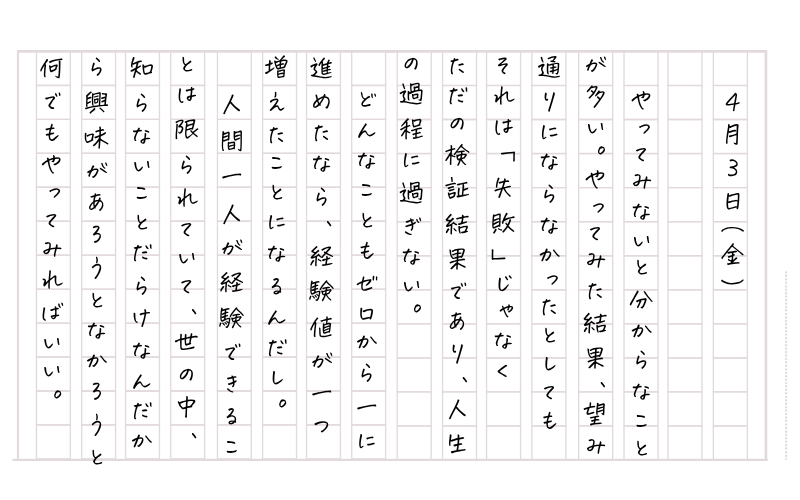 4月3日(金)
やってみないと分からなこと
が多い。やってみた結果、望み
通りにならなかったとしても
それは「失敗」じゃなく
ただの検証結果であり、人生
の過程に過ぎない。
どんなこともゼロから一に
進めたなら、経験値が一つ
増えたことになるんだし。
人間一人が経験できるこ
とは限られていて、世の中、
知らないことだらけなんだか
ら興味があろうとなかろうと
何でもやってみればいい。